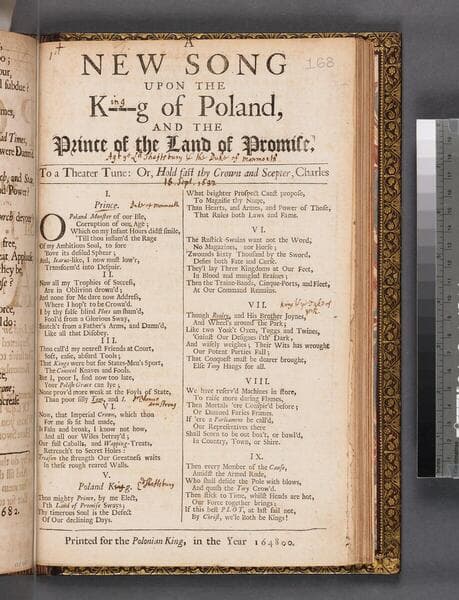 A
NEW SONG
UPON THE
K---g of Poland,
ing
AND THE
Prince of the Land of Promise.
168
To a Theater Tune: Or, Hold fast thy Crown and Scepter, Charles
16. Sept. 1682
I.
Prince.
Duke of Monmouth
O Poland Monster of our Isle,
Corruption of our Age;
Which on my Infant Hours didst smile,
'Till thou inflam'd the Rage
Of my Ambitious Soul, to sore
'Bove its desired Sphear;
And, Icarus-like, I now must low'r,
Transform'd into Despair.
II.
Now all my Trophies of Success,
Are in Oblivion drown'd;
And none for Me dare now Address,
Where I hop't to be Crown'd.
I by thy false blind Plots am stun'd,
Fool'd from a Glorious Sway,
Snatch't from a Father's Arms, and Damn'd,
Like all that Disobey.
III.
Thou call'd my nearest Friends at Court,
Soft, easie, absurd Tools;
That Kings were but for States-Men's Sport,
The Council Knaves and Fools.
But I, poor I, find now too late,
Your Polish Grace can lye;
None prov'd more weak at the Foyls of State,
Than poor silly and I.
VI.
Now, that Imperial Crown, which thou
For me so fit had made,
Is faln and broak, I know not how,
And all our Wiles betray'd;
Our full Caballs, and Whipping-Treats,
Retreach't to Secret Holes:
Treason the strength Our Greatness waits
In these rough reared Walls.
V.
Poland King.
Shaftsbury
Thou mighty Prince, by me Elect,
I'th Land of Promise Sways;
Thy timerous Soul is the Defect
Of Our declining Days.
What brighter Prospect Canst propose,
To Magnifie thy Name,
Than Hearts, and Armes, and Power of Those,
That Raies both Laws and Fame.
VI.
The Rustick-Swains want not the Word,
No Magazines, nor Horse;
'Zwounds sixty Thousand by the Sword,
Defies both Fate and Curse.
They'l lay Three Kingdoms at Our Feet,
In Blood and mangled Braines;
Then the Traine-Bands, Cinque-Ports, and Fleet,
At Our Command Remains.
VII.
Though Rowley, and His Brother Joynes,
And Wheel's around the Park;
Like two Yook't Oxen, Tuggs and Twines,
'Gainst Our Designs i'th' Dark;
And wisely weighes, Their Wits has wrought
Our Potent Parties Fall;
That Conquest must be dearer brought,
Else Tony Hangs for all.
VIII.
We have reserv'd Machines in store,
To raise more daring Flames,
Then Mortals 'ere Conspir'd before;
Or Damned Furies Frames.
If 'ere a Parliament be call'd,
Our Representatives there
Shall Scorn to be out box't, or bawl'd,
In Country, Town, or Shire.
IX.
Then every Member of the Cause,
Amidst the Armed Rude,
Who shall decide the Pole with blows,
And quash the Tory Crow'd.
Then stick to Time, whilst Heads are hot,
Our Force together brings;
If this best PLOT, at last fail not,
By Christ, we'le Both be Kings!
Printed for the Polonian King, in the Year 164800.
682.